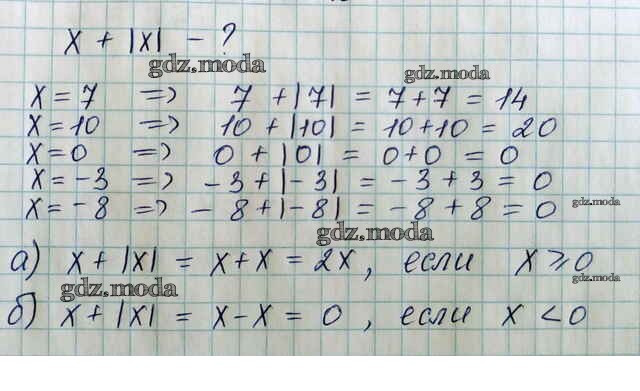 x + |x| - ?
gdz.moda
gdz.moda
x = 7 => 7 + |7| = 7 + 7 = 14
x = 10 => 10 + |10| = 10 + 10 = 20
x = 0 => 0 + |0| = 0 + 0 = 0
x = -3 => -3 + |-3| = -3 + 3 = 0
x = -8 => -8 + |-8| = -8 + 8 = 0
gdz.moda
gdz.moda
а) x + |x| = x + x = 2x, если x ⩾ 0
gdz.moda
gdz.moda
б) x + |x| = x - x = 0, если x < 0